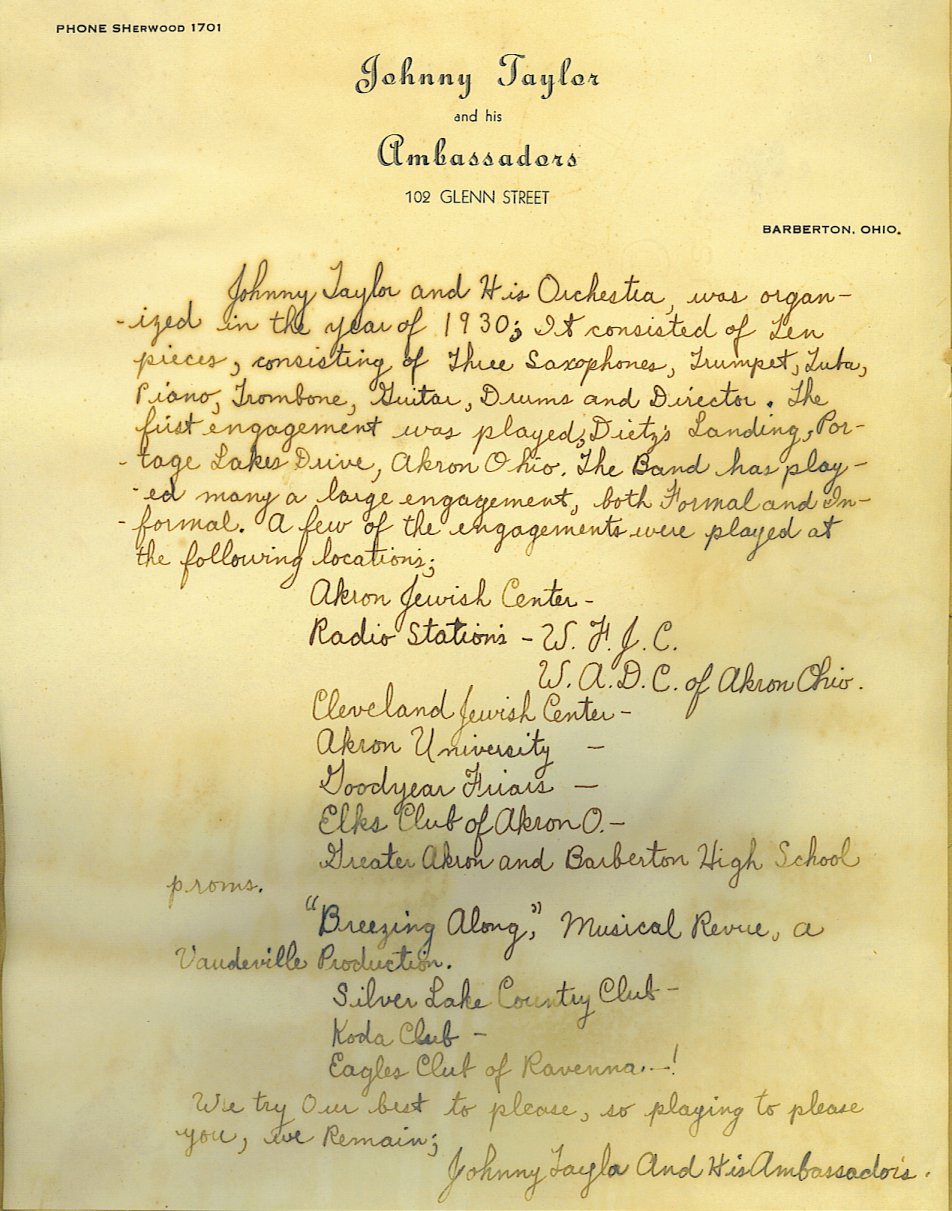 PHONE SHERWOOD 1701
Johnny Taylor
and his
Ambassadors
102 GLENN STREET
BARBERTON, OHIO.
Johnny Taylor and His Orchestra, was organ-
-ized in the year of 1930; It consisted of Ten
pieces, consisting of Three Saxophones, Trumpet, Tuba,
Piano, Trombone, Guitar, Drums and Director. The
first engagement was played; Dietz's Landing, Por-
-tage Lakes Drive, Akron Ohio. The Band has play-
-ed many a large engagement, both Formal and In-
-formal. A few of the engagements were played at
the following locations;
Akron Jewish Center -
Radio Stations - W. F. J. C.
W. A. D. C. of Akron Ohio.
Cleveland Jewish Center -
Akron University -
Goodyear Friars -
Elks Club of Akron O. -
Greater Akron and Barberton High School
proms.
"Breezing Along," Musical Revue, a
Vaudeville Production.
Silver Lake Country Club -
Koda Club -
Eagles Club of Ravenna. -!
We try Our best to please, so playing to please
you, we Remain;
Johnny Taylo And His Ambassadors.